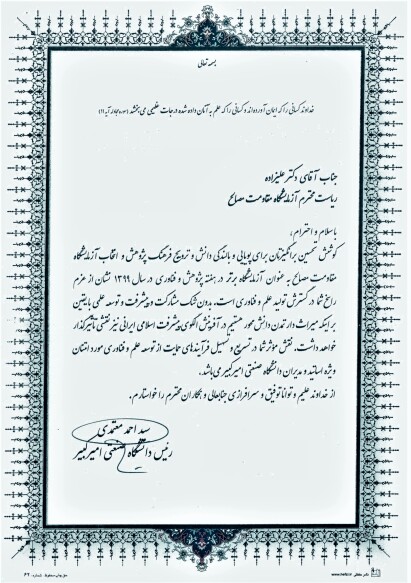 بسمه تعالی
خداوند کسانی را که ایمان آورده‌اند و کسانی را که علم به آنان داده شده درجات عظیمی می‌بخشد (سوره مجادله آیه ۱۱)
جناب آقای دکتر علیزاده
ریاست محترم آزمایشگاه مقاومت مصالح
با سلام و احترام،
کوشش تحسین برانگیزتان برای پویایی و بالندگی دانش و ترویج فرهنگ پژوهش و انتخاب آزمایشگاه
مقاومت مصالح به عنوان آزمایشگاه برتر در هفته پژوهش و فناوری در سال ۱۳۹۹ نشان از عزم
راسخ شما در گسترش تولید علم و فناوری است. بدون شک مشارکت و پیشرفت و توسعه علمی با یقین
بر اینکه میراث دار تمدن دانش محور هستیم در آفرینش الگوی پیشرفت اسلامی ایرانی نیز نقشی تأثیرگذار
خواهد داشت. نقش مؤثر شما در تسریع و تسهیل فرآیندهای حمایت از توسعه علم و فناوری مورد امتنان
ویژه اساتید و مدیران دانشگاه صنعتی امیرکبیر می‌باشد.
از خداوند علیم و توانا توفیق و سرافرازی جنابعالی و همکاران محترم را خواستارم.
سید احمد معتمدی
رئیس دانشگاه صنعتی امیرکبیر
حق چاپ محفوظ شماره: ۴۲